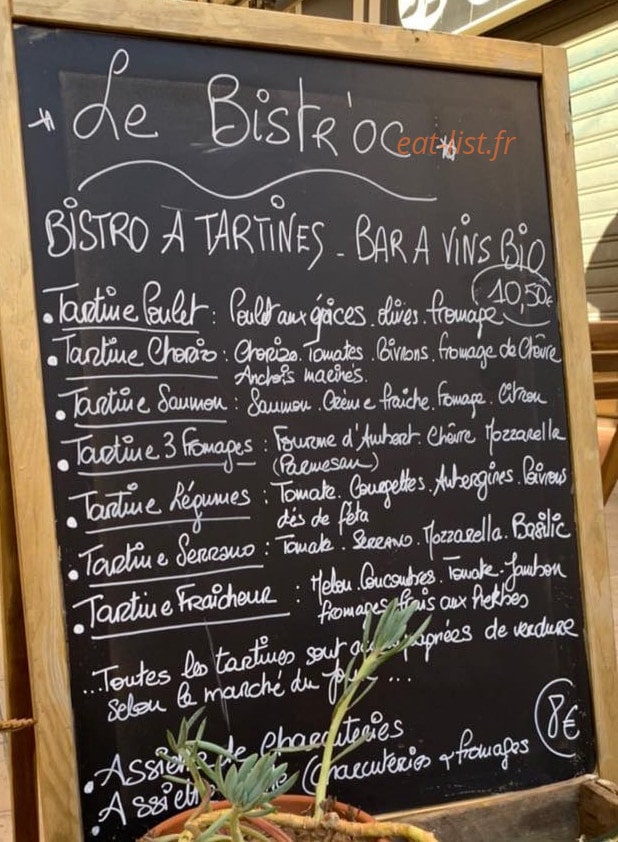 Le Bistr'oc
eat-list.fr
BISTRO A TARTINES - BAR A VINS BIO
10,50€
. Tartine Poulet : Poulet aux épices . olives . fromage
. Tartine Chorizo : Chorizo . Tomates . Poivrons . fromage de Chèvre
Anchois marinés.
. Tartine Saumon : Saumon . Crème fraiche . fromage . Citron
. Tartine 3 Fromages : Fourme d'Ambert . Chèvre Mozzarella
(Parmesan)
. Tartine Légumes : Tomate . Courgettes . Aubergines . Poivrons
dés de féta
. Tartine Serrano : Tomate . SERRANO . Mozzarella . Basilic
. Tartine FRAICHEUR : Melon . Concombres . Tomate . Jambon
fromages frais aux Herbes
...Toutes les tartines sont accompagnées de verdure
selon le marché du jour ...
. Assiette de Charcuteries
8€
. Assiette (Charcuteries & fromages